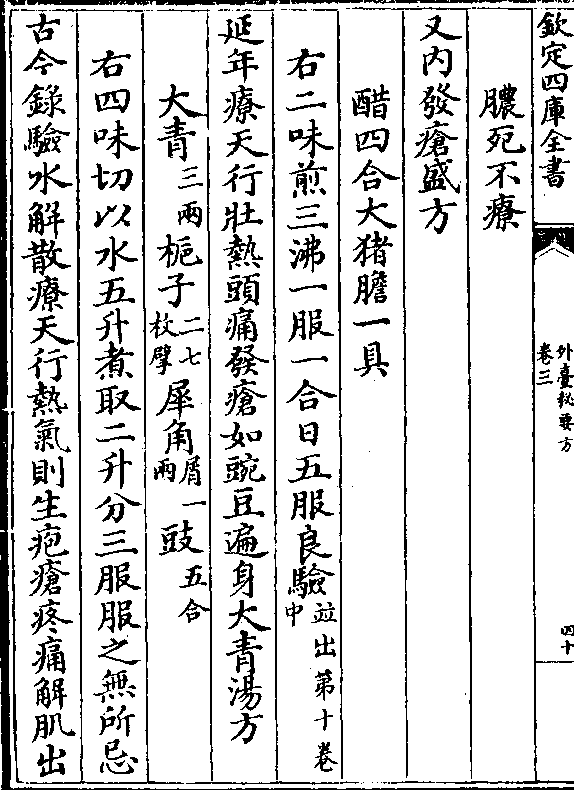 欽定四庫全書
外臺秘要方
卷三
四十
膿死不療
又内發瘡盛方
醋四合大猪膽一具
右二味煎三沸一服一合日五服良驗並出第十卷中
延年療天行壯熱頭痛發瘡如豌豆遍身大青湯方
大青三兩梔子二七枚擘犀角屑一兩豉五合
右四味切以水五升煮取二升分三服服之無所忌
古今錄驗水解散療天行熱氣則生疱瘡疼痛解肌出